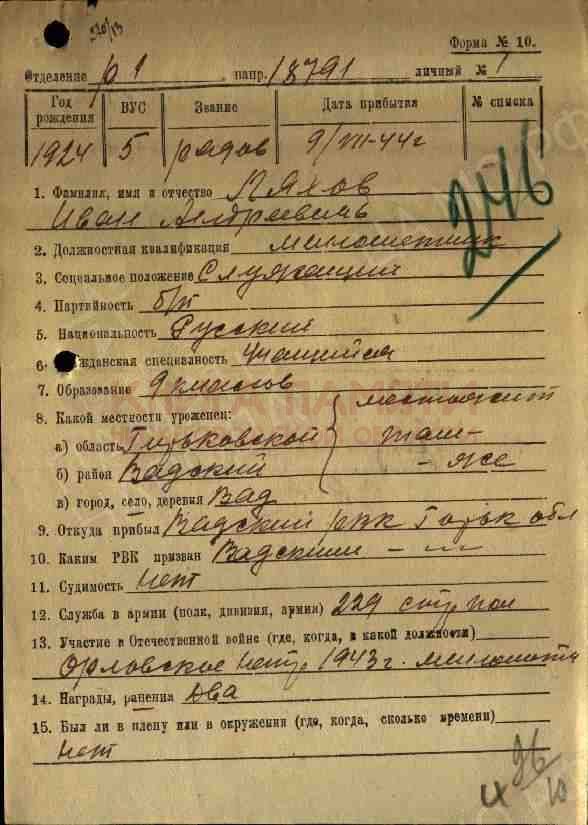 270/13
Форма № 10.
Отделение р 1 напр. 18791 личный № 1
Год рождения ВУС Звание Дата прибытия № списка
1924 5 рядов 9/VII-44г
246
1. Фамилия, имя и отчество Ляхов
Иван Андреевичь
2. Должностная квалификация минометчик
3. Социальное положение Служащий
4. Партийность б/п
5. Национальность Русский
6. жданская специвлность учащийся
7. Образование 9 классов
8. Какой местности уроженец: местожит
а) область Горьковской там-
б) район Вадский - же
в) город, село, деревня Вад
9. Откуда прибыл Вадский рвк Горьк обл
10. Каким РВК призван Вадским - " -
11. Судимость нет
12. Служба в армии (полк, дивизия, армия) 229 стр пол
13. Участие в Отечественной войне (где, когда, в какой должности)
Орловское 1943г.
14. Награды, ранения два
15. Был ли в плену или в окружения (где, когда, сколько времени)
нет
26
10
КНИГА ПАМЯТИ